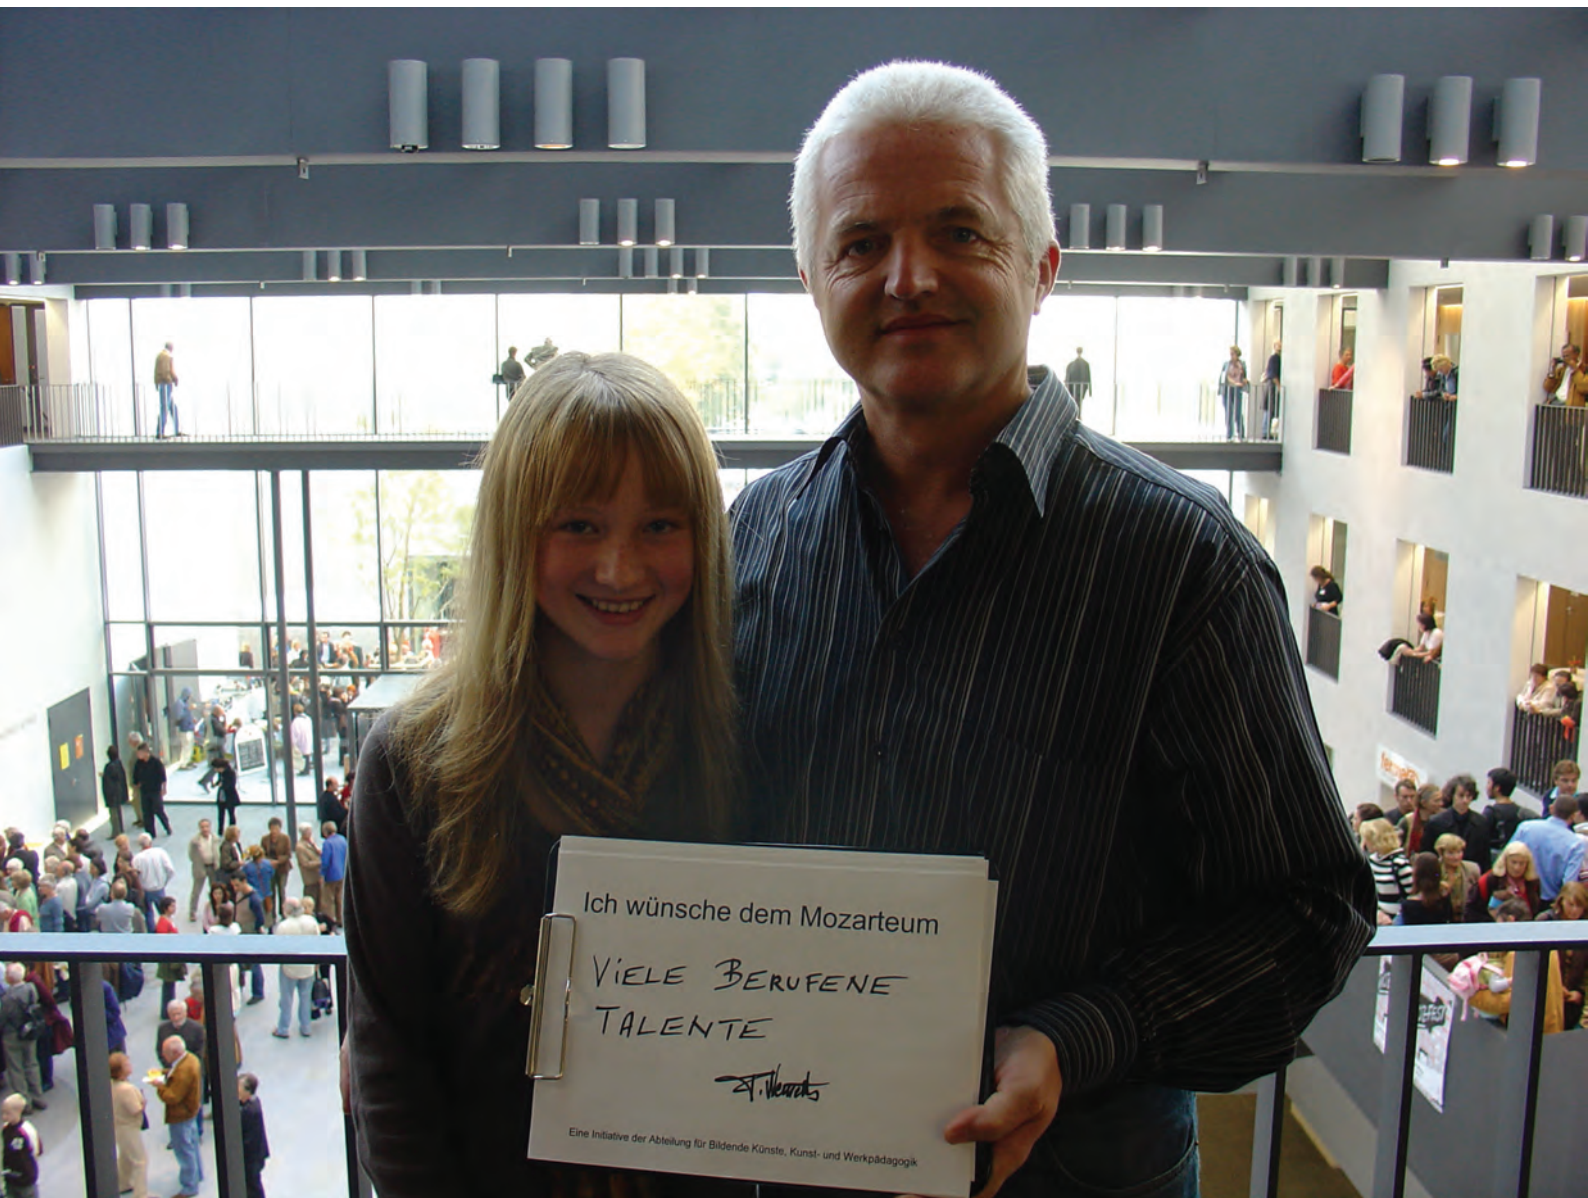 Ich wünsche dem Mozarteum
VIELE BERUFENE
TALENTE
Eine Initiative der Abteilung für Bildende Künste, Kunst- und Werkpädagogik